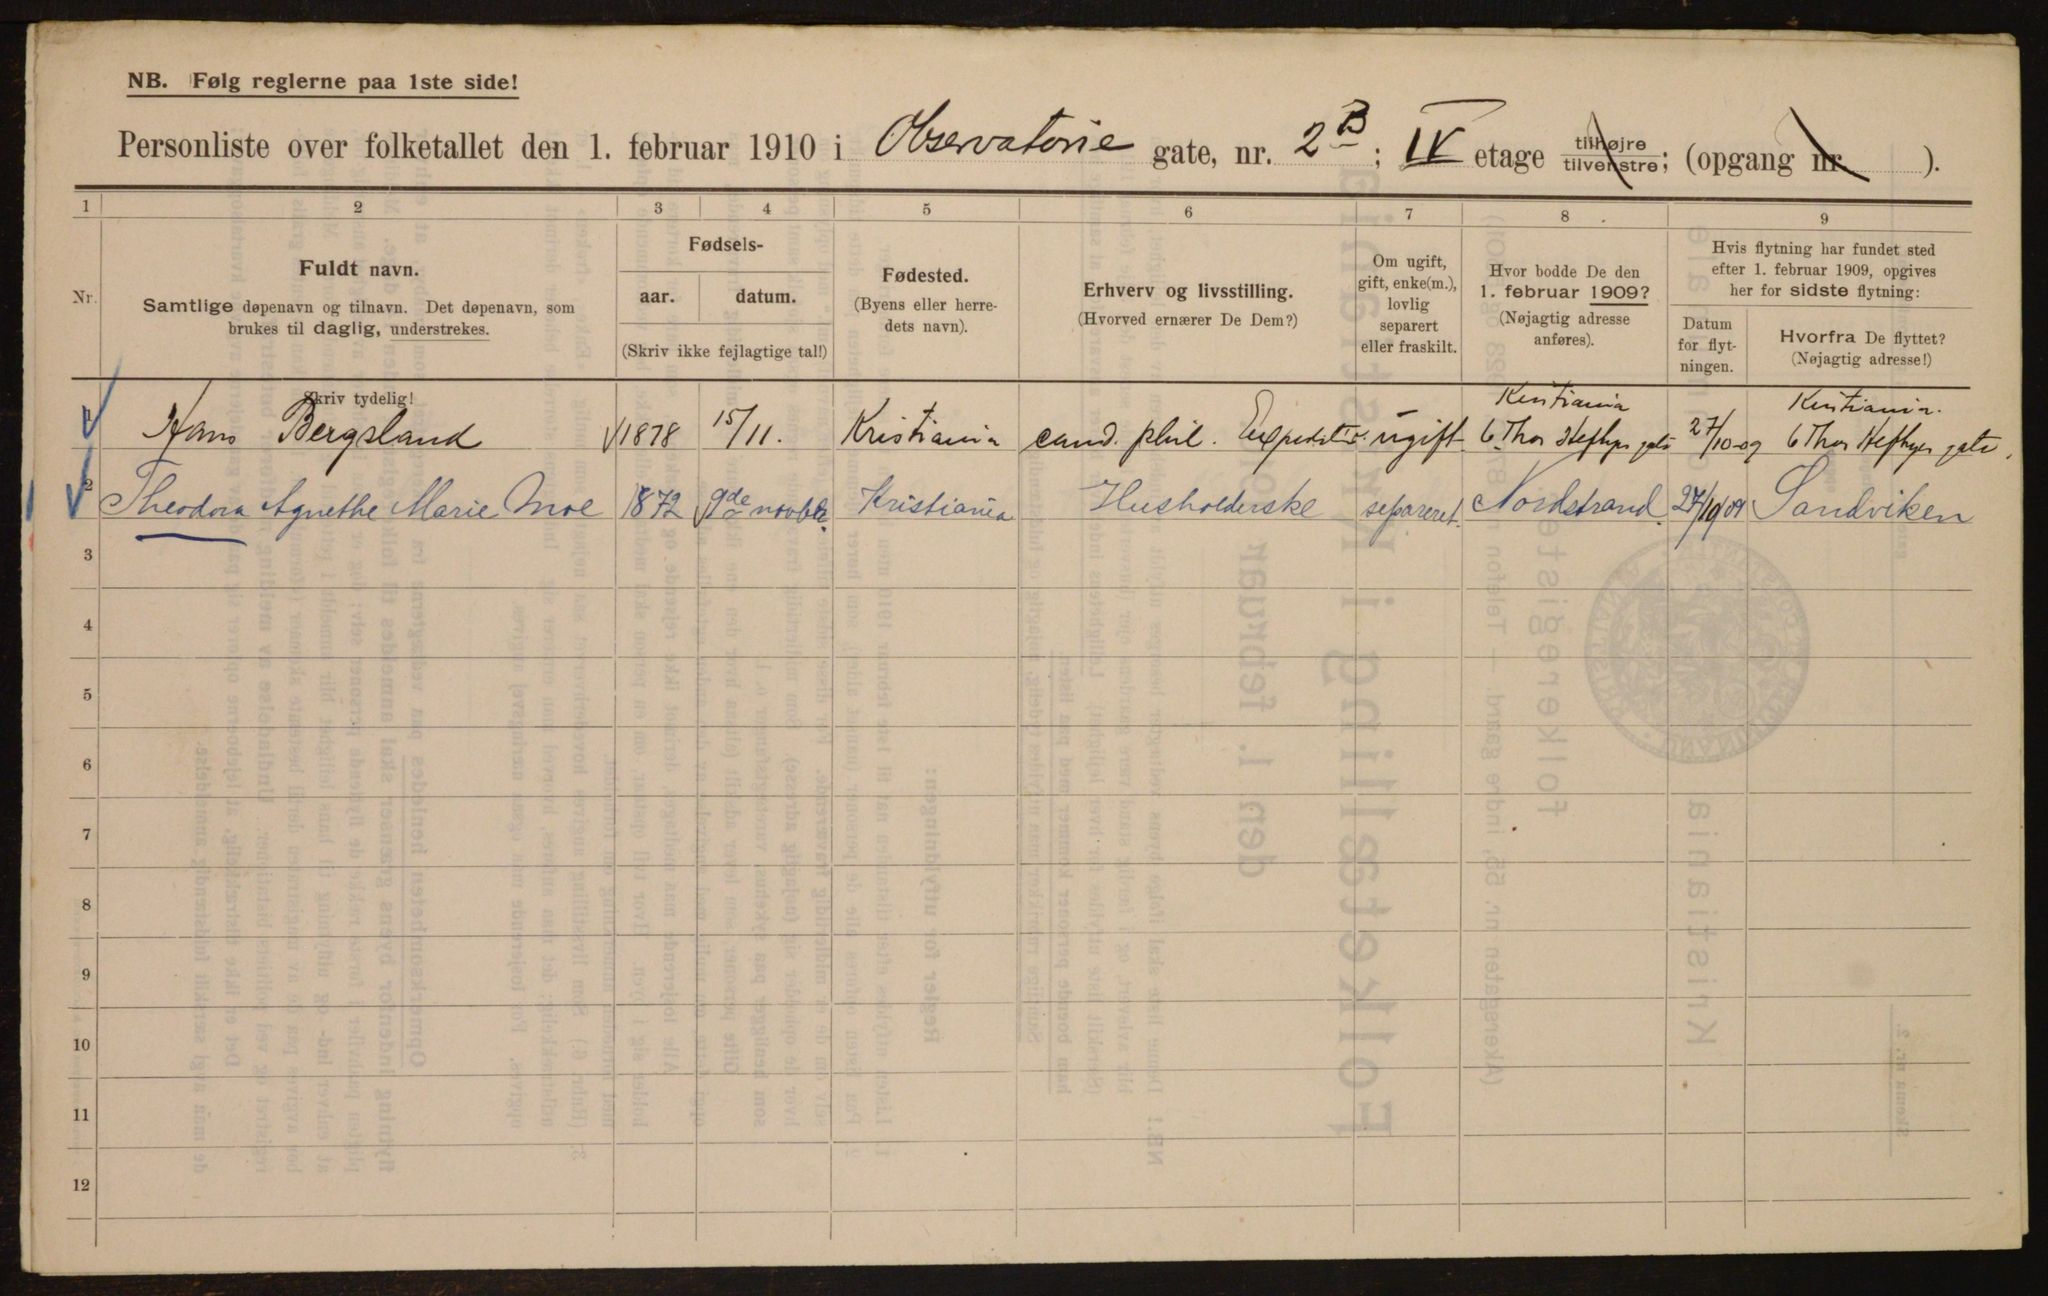 NB. Følg reglerne paa 1ste side!
Personliste over folketallet den 1. februar 1910 i Observatorie gate, nr. 2 B ; IV etage tilhøjre tilvenstre ; (opgang nr. ).
1 2 3 4 5 6 7 8 9
Nr.
Fuldt navn.
Samtlige døpenavn og tilnavn. Det døpenavn, som
brukes til daglig, understrekes.
Skriv tydelig!
Fødsels-
aar. datum.
(Skriv ikke fejlagtige tal!)
Fødested.
(Byens eller herre-
dets navn).
Erhverv og livsstilling.
(Hvorved ernærer De Dem?)
Om ugift,
gift, enke(m.),
lovlig
separert
eller fraskilt.
Hvor bodde De den
1. februar 1909?
(Nøjagtig adresse
anføres).
Hvis flytning har fundet sted
efter 1. februar 1909, opgives
her for sidste flytning:
Datum
for flyt-
ningen.
Hvorfra De flyttet?
(Nøjagtig adresse!)
1 Hans Bergsland 1878 15/11. Kristiania cand. phil. ugift Kristiania 6 Thos Heftyes gate 27/10-09 Kristiania. 6 Thos Heftyes gate.
2 Theodora Agnethe Marie Moe 1872 9de novbr. Kristiania Husholderske separeret. Nordstrand. 27/10 09 Sandviken
3
4
5
6
7
8
9
10
11
12